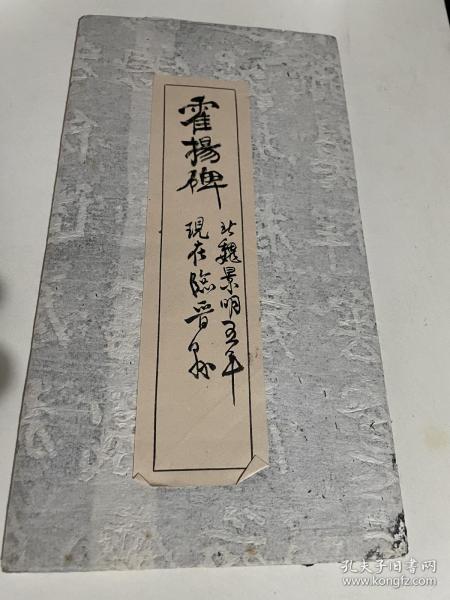 霍揚碑
北魏景明五年
現在臨晋县
孔夫子旧书网
www.kongfz.com